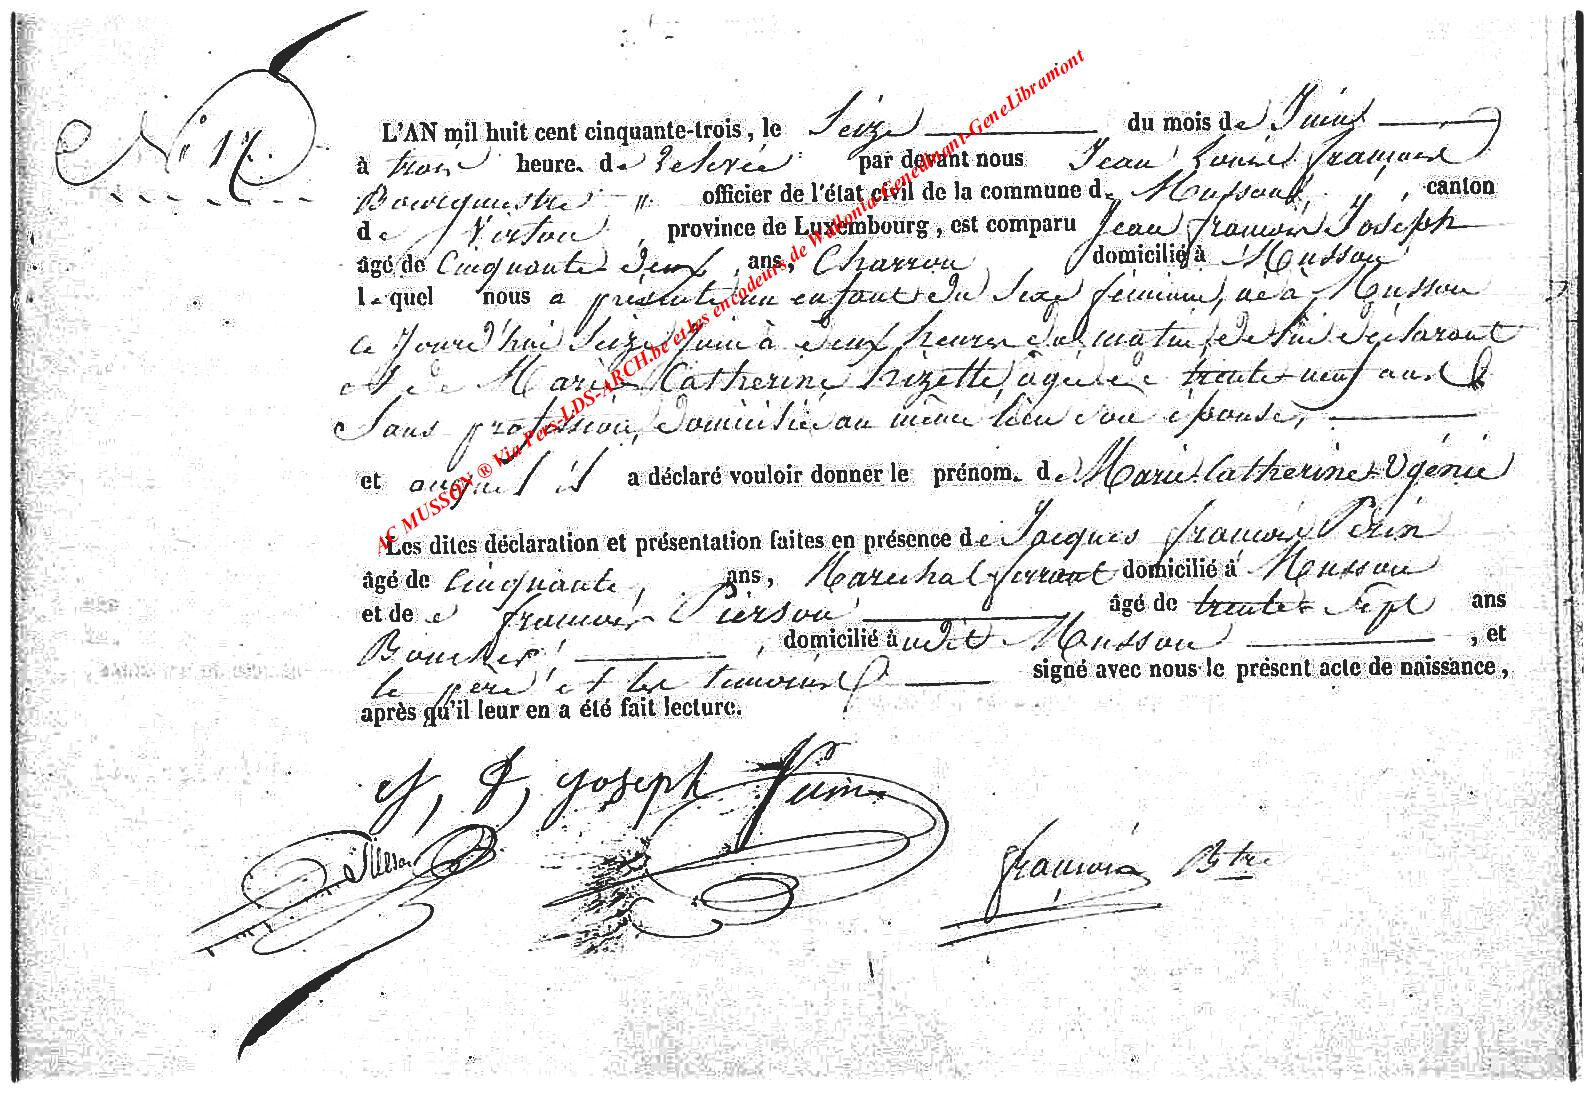 N° 17.
L'AN mil huit cent cinquante-trois, le Seize du mois de Juin
à trois heure. de relevée par devant nous Jean Louis françois
Bourgmestre " officier de l'état civil de la commune de Musson, " , canton
de Virton , province de Luxembourg, est comparu Jean françois Joseph
âgé de Cinquante deux , ans, Charron domicilié à Musson
lequel nous a présenté un enfant du Sexe féminin, né à Musson
ce Jourd'hui Seize Juin à deux heures du matin, de lui déclarant
et de Marie Catherine Lizette, agée de trente-neuf ans
Sans profession, domicilié au même lieu son épouse,
et auquel il a déclaré vouloir donner le prénom. de Marie-Catherine-Ugénie
Les dites déclaration et présentation faites en présence de Jacques françois Perin
âgé de Cinquante, ans, Marechal ferrant domicilié à Musson
et de françois Pierson âgé de trente-Sept ans
Boucher, , domicilié àudit Musson , et
le père et les temoins signé avec nous le présent acte de naissance,
après qu'il leur en a été fait lecture.
J, f, Joseph Perin
Pierson
françois Btre
AC MUSSON ® Via Pers-LDS-ARCH.be et les encodeurs de Wallonia-Genedinant-GeneLibramont